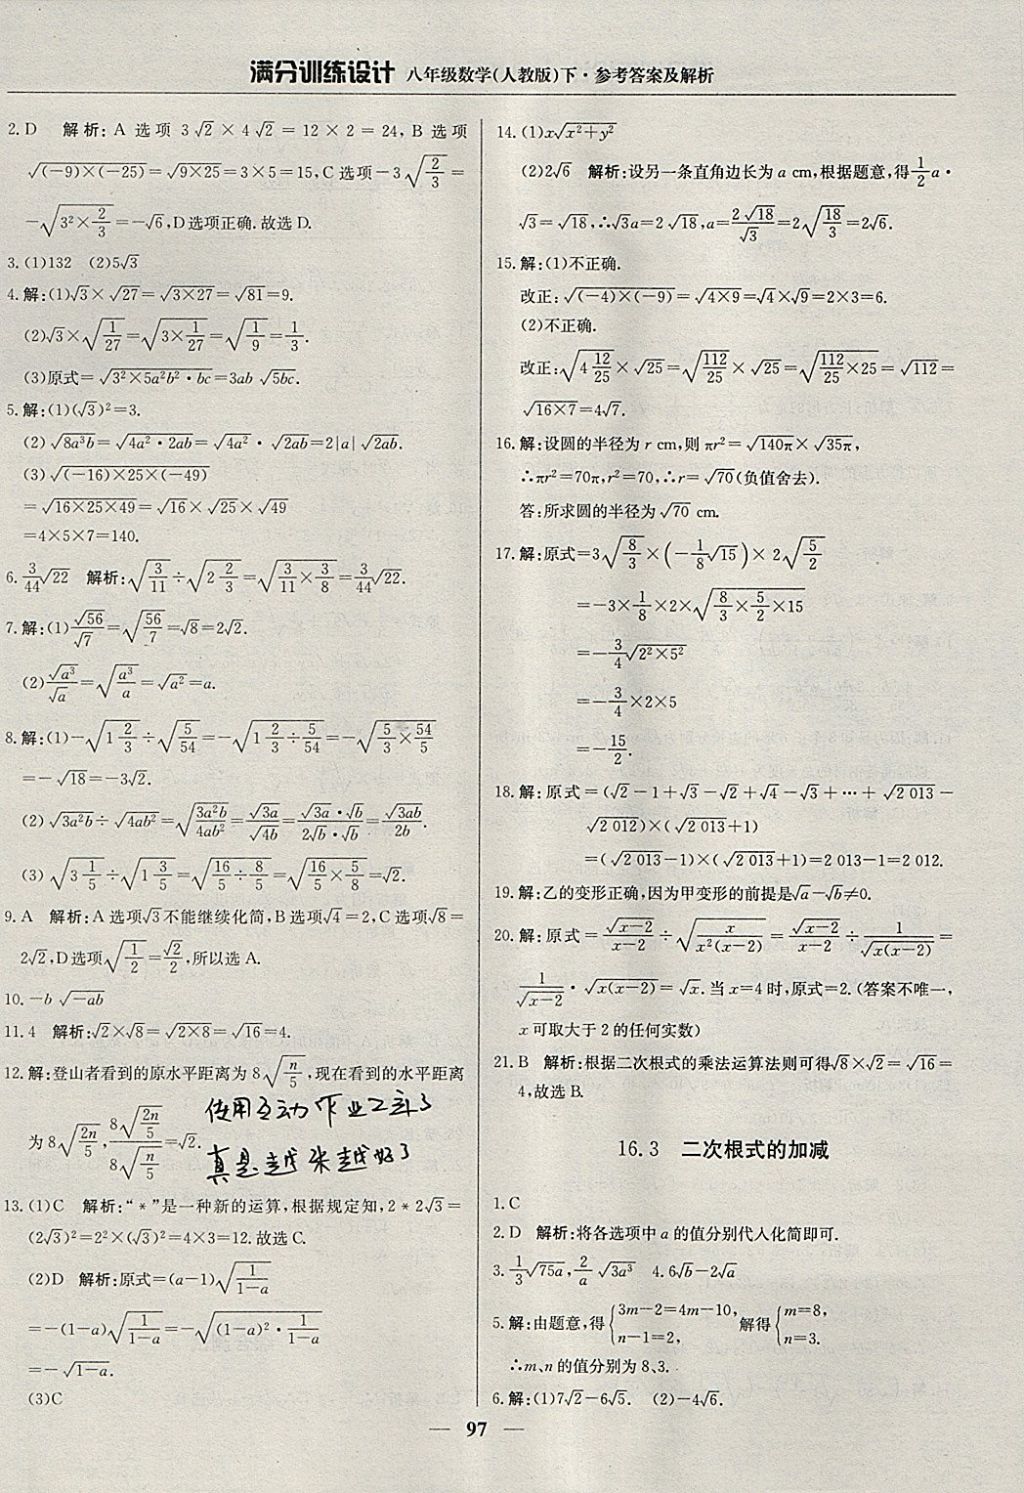 满分训练设计 八年级数学(人教版)下·参考答案及解析
2. D 解析:A 选项 3√2×4√2=12×2=24,B 选项
√((-9)×(-25))=√(9×25)=3×5=15,C选项-3√(2/3)=
-√(3²×2/3)=-√6,D选项正确.故选D.
3. (1)132 (2)5√3
4. 解:(1)√3×√27=√(3×27)=√81=9.
(2)√3×√(1/27)=√(3×1/27)=√(1/9)=1/3.
(3)原式=√(3²×5a²b²·bc)=3ab√(5bc).
5. 解:(1)(√3)²=3.
(2)√(8a³b)=√(4a²·2ab)=√(4a²)·√(2ab)=2|a|√(2ab).
(3)√((-16)×25×(-49))
=√(16×25×49)=√16×√25×√49
=4×5×7=140.
6. 3/44√22 解析:√(3/11)÷√(2 2/3)=√(3/11×3/8)=3/44√22.
7. 解:(1)√56/√7=√(56/7)=√8=2√2.
(2)√(a³)/√a=√(a³/a)=√(a²)=a.
8. 解:(1)-√(1 2/3)÷√(5/54)=-√(1 2/3÷5/54)=-√(5/3×54/5)
=-√18=-3√2.
(2)√(3a²b)÷√(4ab²)=√(3a²b/4ab²)=√(3a)/√(4b)=√(3a)·√b/2√b·√b=√(3ab)/2b.
(3)√(3 1/5)÷√(1 3/5)=√(16/5÷8/5)=√(16/5×5/8)=√2.
9. A 解析:A选项√3不能继续化简,B选项√4=2,C选项√8=
2√2,D选项√(1/2)=√2/2,所以选A.
10. -b√(-ab)
11. 4 解析:√2×√8=√(2×8)=√16=4.
12. 解:登山者看到的原水平距离为8√(n/5),现在看到的水平距离
为8√(2n/5),8√(2n/5)/8√(n/5)=√2.
使用互动作业工具了
真是越来越好了
13. (1)C 解析:“*”是一种新的运算,根据规定知,2*2√3=
(2√3)²=2²×(√3)²=4×3=12.故选C.
(2)D 解析:原式=(a-1)√(1/(1-a))
=-(1-a)√(1/(1-a))=-√((1-a)²·1/(1-a))
=-√(1-a).
(3)C
14. (1)x√(x²+y²)
(2)2√6 解析:设另一条直角边长为a cm,根据题意,得1/2a·
√3=√18,∴√3a=2√18,a=2√18/√3=2√(18/3)=2√6.
15. 解:(1)不正确.
改正:√((-4)×(-9))=√(4×9)=√4×√9=2×3=6.
(2)不正确.
改正:√(4 12/25)×√25=√(112/25)×√25=√(112/25×25)=√112=
√(16×7)=4√7.
16. 解:设圆的半径为r cm,则πr²=√(140π)×√(35π),
∴πr²=70π,r²=70,∴r=√70(负值舍去).
答:所求圆的半径为√70 cm.
17. 解:原式=3√(8/3)×(-1/8√15)×2√(5/2)
=-3×1/8×2×√(8/3×5/2×15)
=-3/4√(2²×5²)
=-3/4×2×5
=-15/2.
18. 解:原式=(√2-1+√3-√2+√4-√3+…+√2 013-
√2 012)×(√2 013+1)
=(√2 013-1)×(√2 013+1)=2 013-1=2 012.
19. 解:乙的变形正确,因为甲变形的前提是√a-√b≠0.
20. 解:原式=√(x-2)/(x-2)÷√(x/(x²(x-2)))=√(x-2)/(x-2)÷1/√(x(x-2))=
1/√(x-2)·√(x(x-2))=√x.当x=4时,原式=2.(答案不唯一,
x可取大于2的任何实数)
21. B 解析:根据二次根式的乘法运算法则可得√8×√2=√16=
4,故选B.
16.3 二次根式的加减
1. C
2. D 解析:将各选项中a的值分别代人化简即可.
3. 1/3√(75a),2/a√(3a³) 4. 6√b-2√a
5. 解:由题意,得{3m-2=4m-10, n-1=2, 解得{m=8, n=3.
∴m、n的值分别为8、3.
6. 解:(1)7√2-6√5. (2)-4√6.
— 97 —